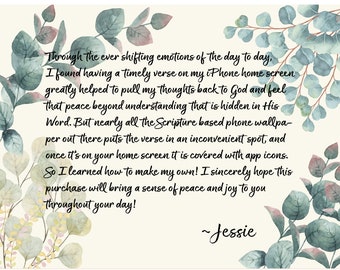 Through the ever shifting emotions of the day to day,
I found having a timely verse on my iPhone home screen
greatly helped to pull my thoughts back to God and feel
that peace beyond understanding that is hidden in His
Word. But nearly all the Scripture based phone wallpa-
per out there puts the verse in an inconvenient spot, and
once it's on your home screen it is covered with app icons.
So I learned how to make my own! I sincerely hope this
purchase will bring a sense of peace and joy to you
throughout your day!
~Jessie